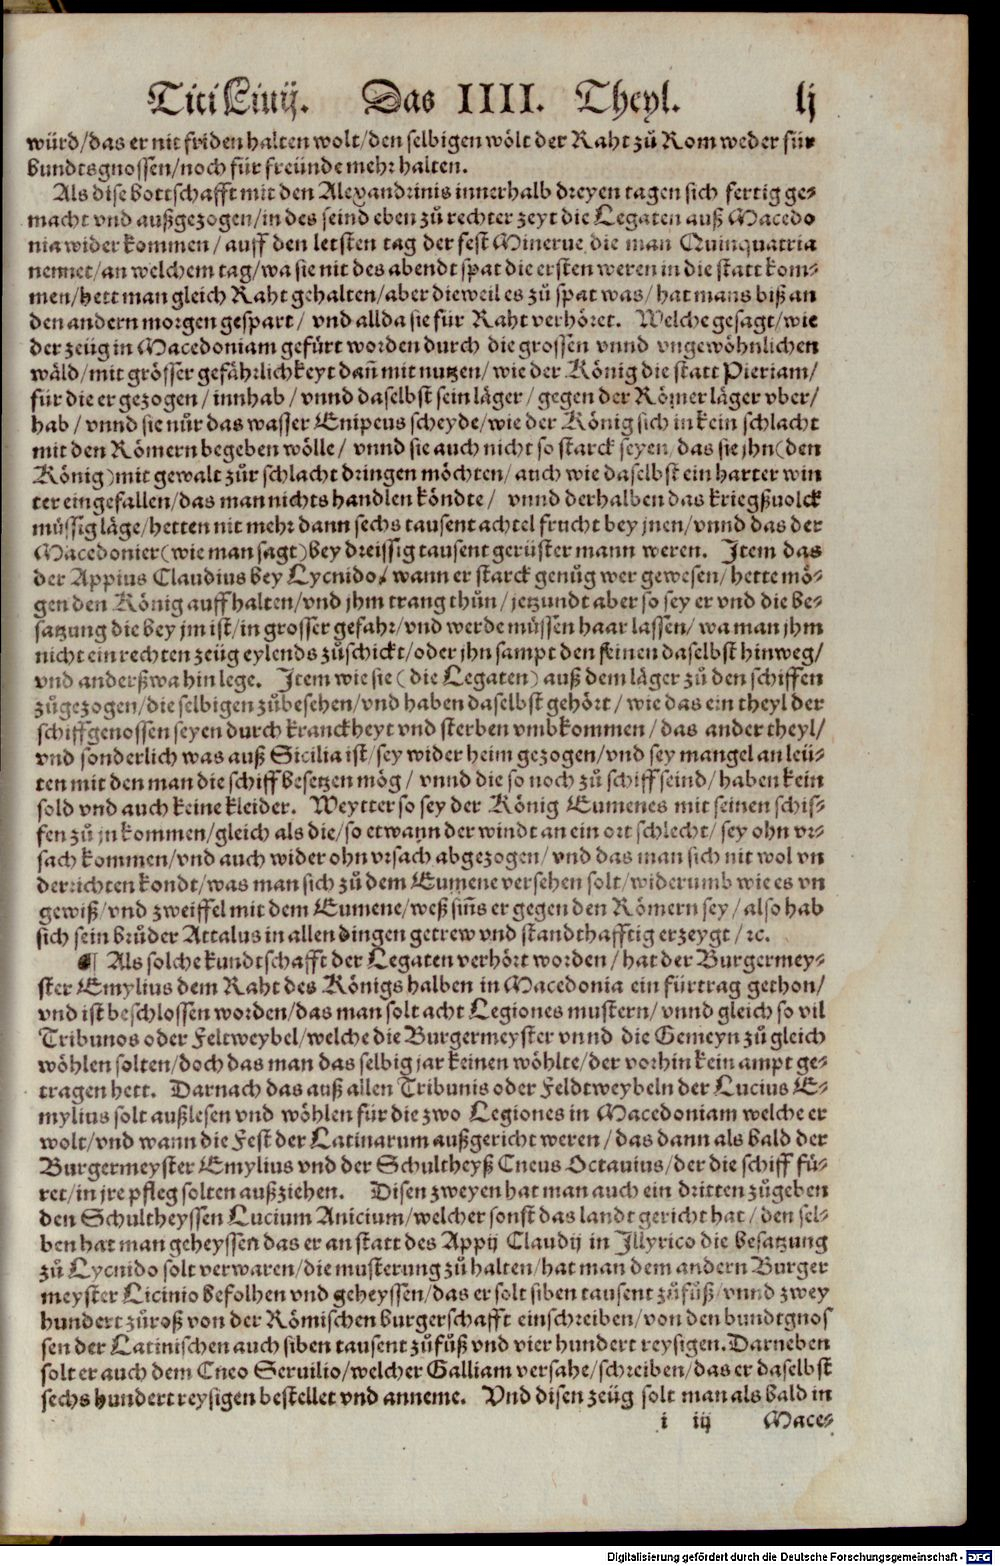 Titi Liuij. Das IIII. Theyl. lj
würd/das er nit friden halten wolt/den selbigen wölt der Raht zů Rom weder für
bundtsgnossen/noch für freünde mehr halten.
Als dise bottschafft mit den Alexandrinis innerhalb dreyen tagen sich fertig ge-
macht vnd außgezogen/in des seind eben zů rechter zeyt die Legaten auß Macedo
nia wider kommen/auff den letsten tag der fest Minerue die man Quinquatria
nennet/an welchem tag/wa sie nit des abendt spat die ersten weren in die statt kom-
men/hett man gleich Raht gehalten/aber dieweil es zů spat was/hat mans biß an
den andern morgen gespart/ vnd allda sie für Raht verhöret. Welche gesagt/wie
der zeüg in Macedoniam gefürt worden durch die grossen vnnd vngewöhnlichen
wäld/mit grösser gefährlichkeyt dañ mit nutzen/wie der König die statt Pieriam/
für die er gezogen/innhab/vnnd daselbst sein läger/gegen der Römer läger vber/
hab/vnnd sie nůr das wasser Enipeus scheyde/wie der König sich in kein schlacht
mit den Römern begeben wölle/ vnnd sie auch nicht so starck seyen/das sie jhn (den
König) mit gewalt zůr schlacht dringen möchten/auch wie daselbst ein harter win
ter eingefallen/das man nichts handlen köndte/ vnnd derhalben das kriegßuolck
müssig läge/hetten nit mehr dann sechs tausent achtel frucht bey jnen/vnnd das der
Macedonier (wie man sagt) bey dreissig tausent gerüster mann weren. Item das
der Appius Claudius bey Lycnido/wann er starck genůg wer gewesen/hette mö-
gen den König auffhalten/vnd jhm trang thůn/jetzundt aber so sey er vnd die be-
satzung die bey jm ist/in grosser gefahr/vnd werde müssen haar lassen/wa man jhm
nicht ein rechten zeüg eylends zůschickt/oder jhn sampt den seinen daselbst hinweg/
vnd anderßwa hin lege. Item wie sie (die Legaten) auß dem läger zů den schiffen
zůgezogen/die selbigen zůbesehen/vnd haben daselbst gehört/wie das ein theyl der
schiffgenossen seyen durch kranckheyt vnd sterben vmbkommen/das ander theyl/
vnd sonderlich was auß Sicilia ist/sey wider heim gezogen/vnd sey mangel an leü-
ten mit den man die schiff besetzen mög/ vnnd die so noch zů schiff seind/haben kein
sold vnd auch keine kleider. Weytter so sey der König Eumenes mit seinen schif-
fen zů jn kommen/gleich als die/so etwann der windt an ein ort schlecht/sey ohn vr-
sach kommen/vnd auch wider ohn vrsach abgezogen/vnd das man sich nit wol vn
derrichten kondt/was man sich zů dem Eumene versehen solt/widerumb wie es vn
gewiß/vnd zweiffel mit dem Eumene/weß siñs er gegen den Römern sey/also hab
sich sein brůder Attalus in allen dingen getrew vnd standthafftig erzeygt/ꝛc.
¶ Als solche kundtschafft der Legaten verhört worden/hat der Burgermey-
ster Emylius dem Raht des Königs halben in Macedonia ein fürtrag gethon/
vnd ist beschlossen worden/das man solt acht Legiones mustern/vnnd gleich so vil
Tribunos oder Feltweybel/welche die Burgermeyster vnnd die Gemeyn zů gleich
wöhlen solten/doch das man das selbig jar keinen wöhlte/der vorhin kein ampt ge-
tragen hett. Darnach das auß allen Tribunis oder Feldtweybeln der Lucius E-
mylius solt außlesen vnd wöhlen für die zwo Legiones in Macedoniam welche er
wolt/vnd wann die Fest der Latinarum außgericht weren/das dann als bald der
Burgermeyster Emylius vnd der Schultheyß Cneus Octauius/der die schiff fü-
ret/in jre pfleg solten außziehen. Disen zweyen hat man auch ein dritten zůgeben
den Schultheyssen Lucium Anicium/welcher sonst das landtgericht hat/den sel-
ben hat man geheyssen das er an statt des Appij Claudij in Illyrico die besatzung
zů Lycnido solt verwaren/die musterung zů halten/hat man dem andern Burger
meyster Licinio befolhen vnd geheyssen/das er solt siben tausent zůfůß/vnnd zwey
hundert zůroß von der Römischen burgerschafft einschreiben/von den bundtgnos
sen der Latinischen auch siben tausent zůfůß vnd vier hundert reysigen. Darneben
solt er auch dem Cneo Seruilio/welcher Galliam versahe/schreiben/das er daselbst
sechs hundert reysigen bestellet vnd anneme. Vnd disen zeüg solt man als bald in
i iij Mace-
Digitalisierung gefördert durch die Deutsche Forschungsgemeinschaft - DFG